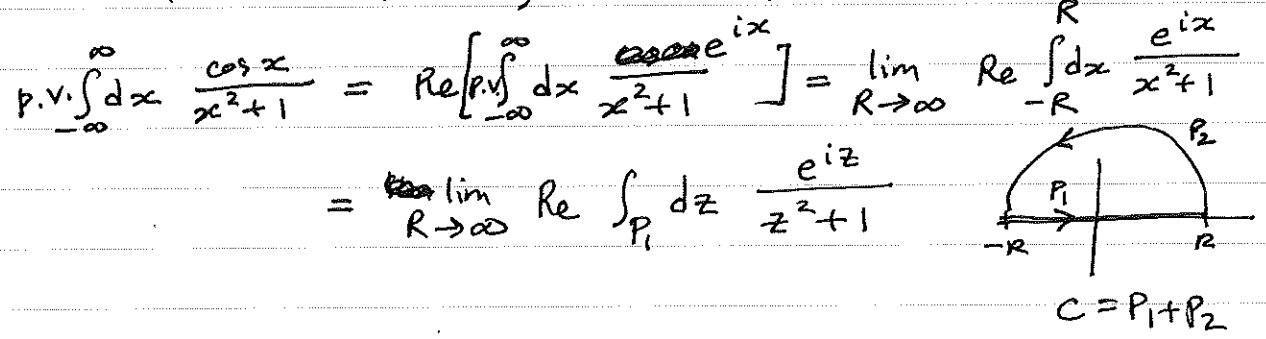 p.v. ∫_{-∞}^{∞} dx cos x / (x²+1) = Re[p.v. ∫_{-∞}^{∞} dx e^{ix} / (x²+1)] = lim_{R→∞} Re ∫_{-R}^{R} dx e^{ix} / (x²+1)
= lim_{R→∞} Re ∫_{P₁} dz e^{iz} / (z²+1)
P₂
P₁
-R R
C = P₁+P₂